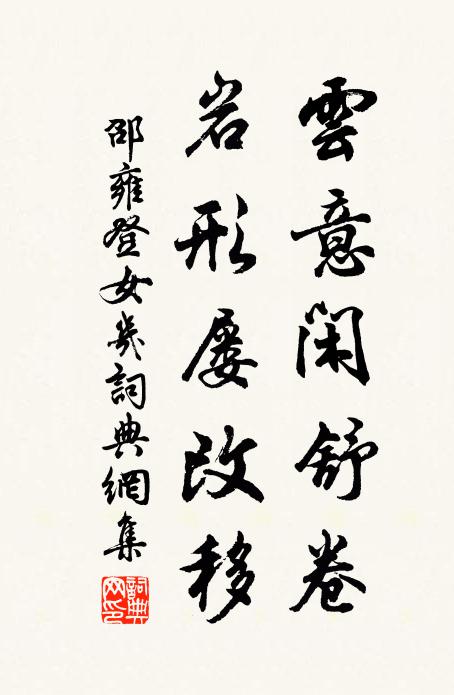 雲意閑舒卷
岩形屡改移
邵雍登女㡬詞典網集
詞典網印